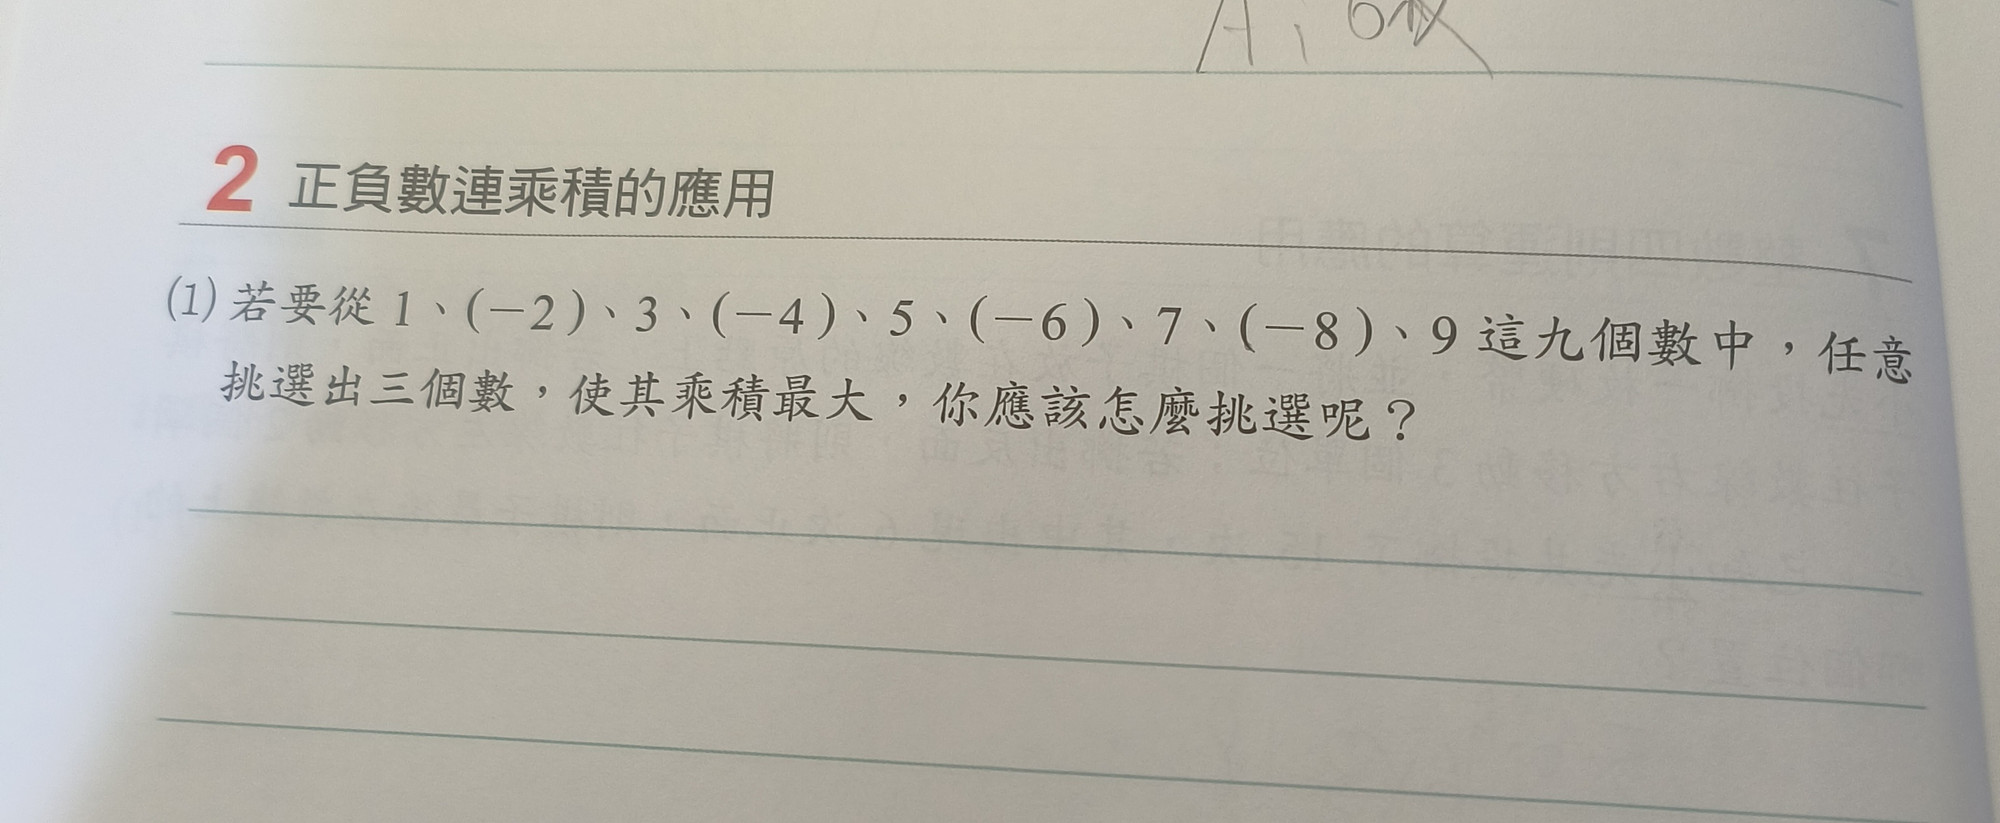 A: 6
2 正負數連乘積的應用
(1) 若要從 1、(−2)、3、(−4)、5、(−6)、7、(−8)、9 這九個數中，任意
挑選出三個數，使其乘積最大，你應該怎麼挑選呢？